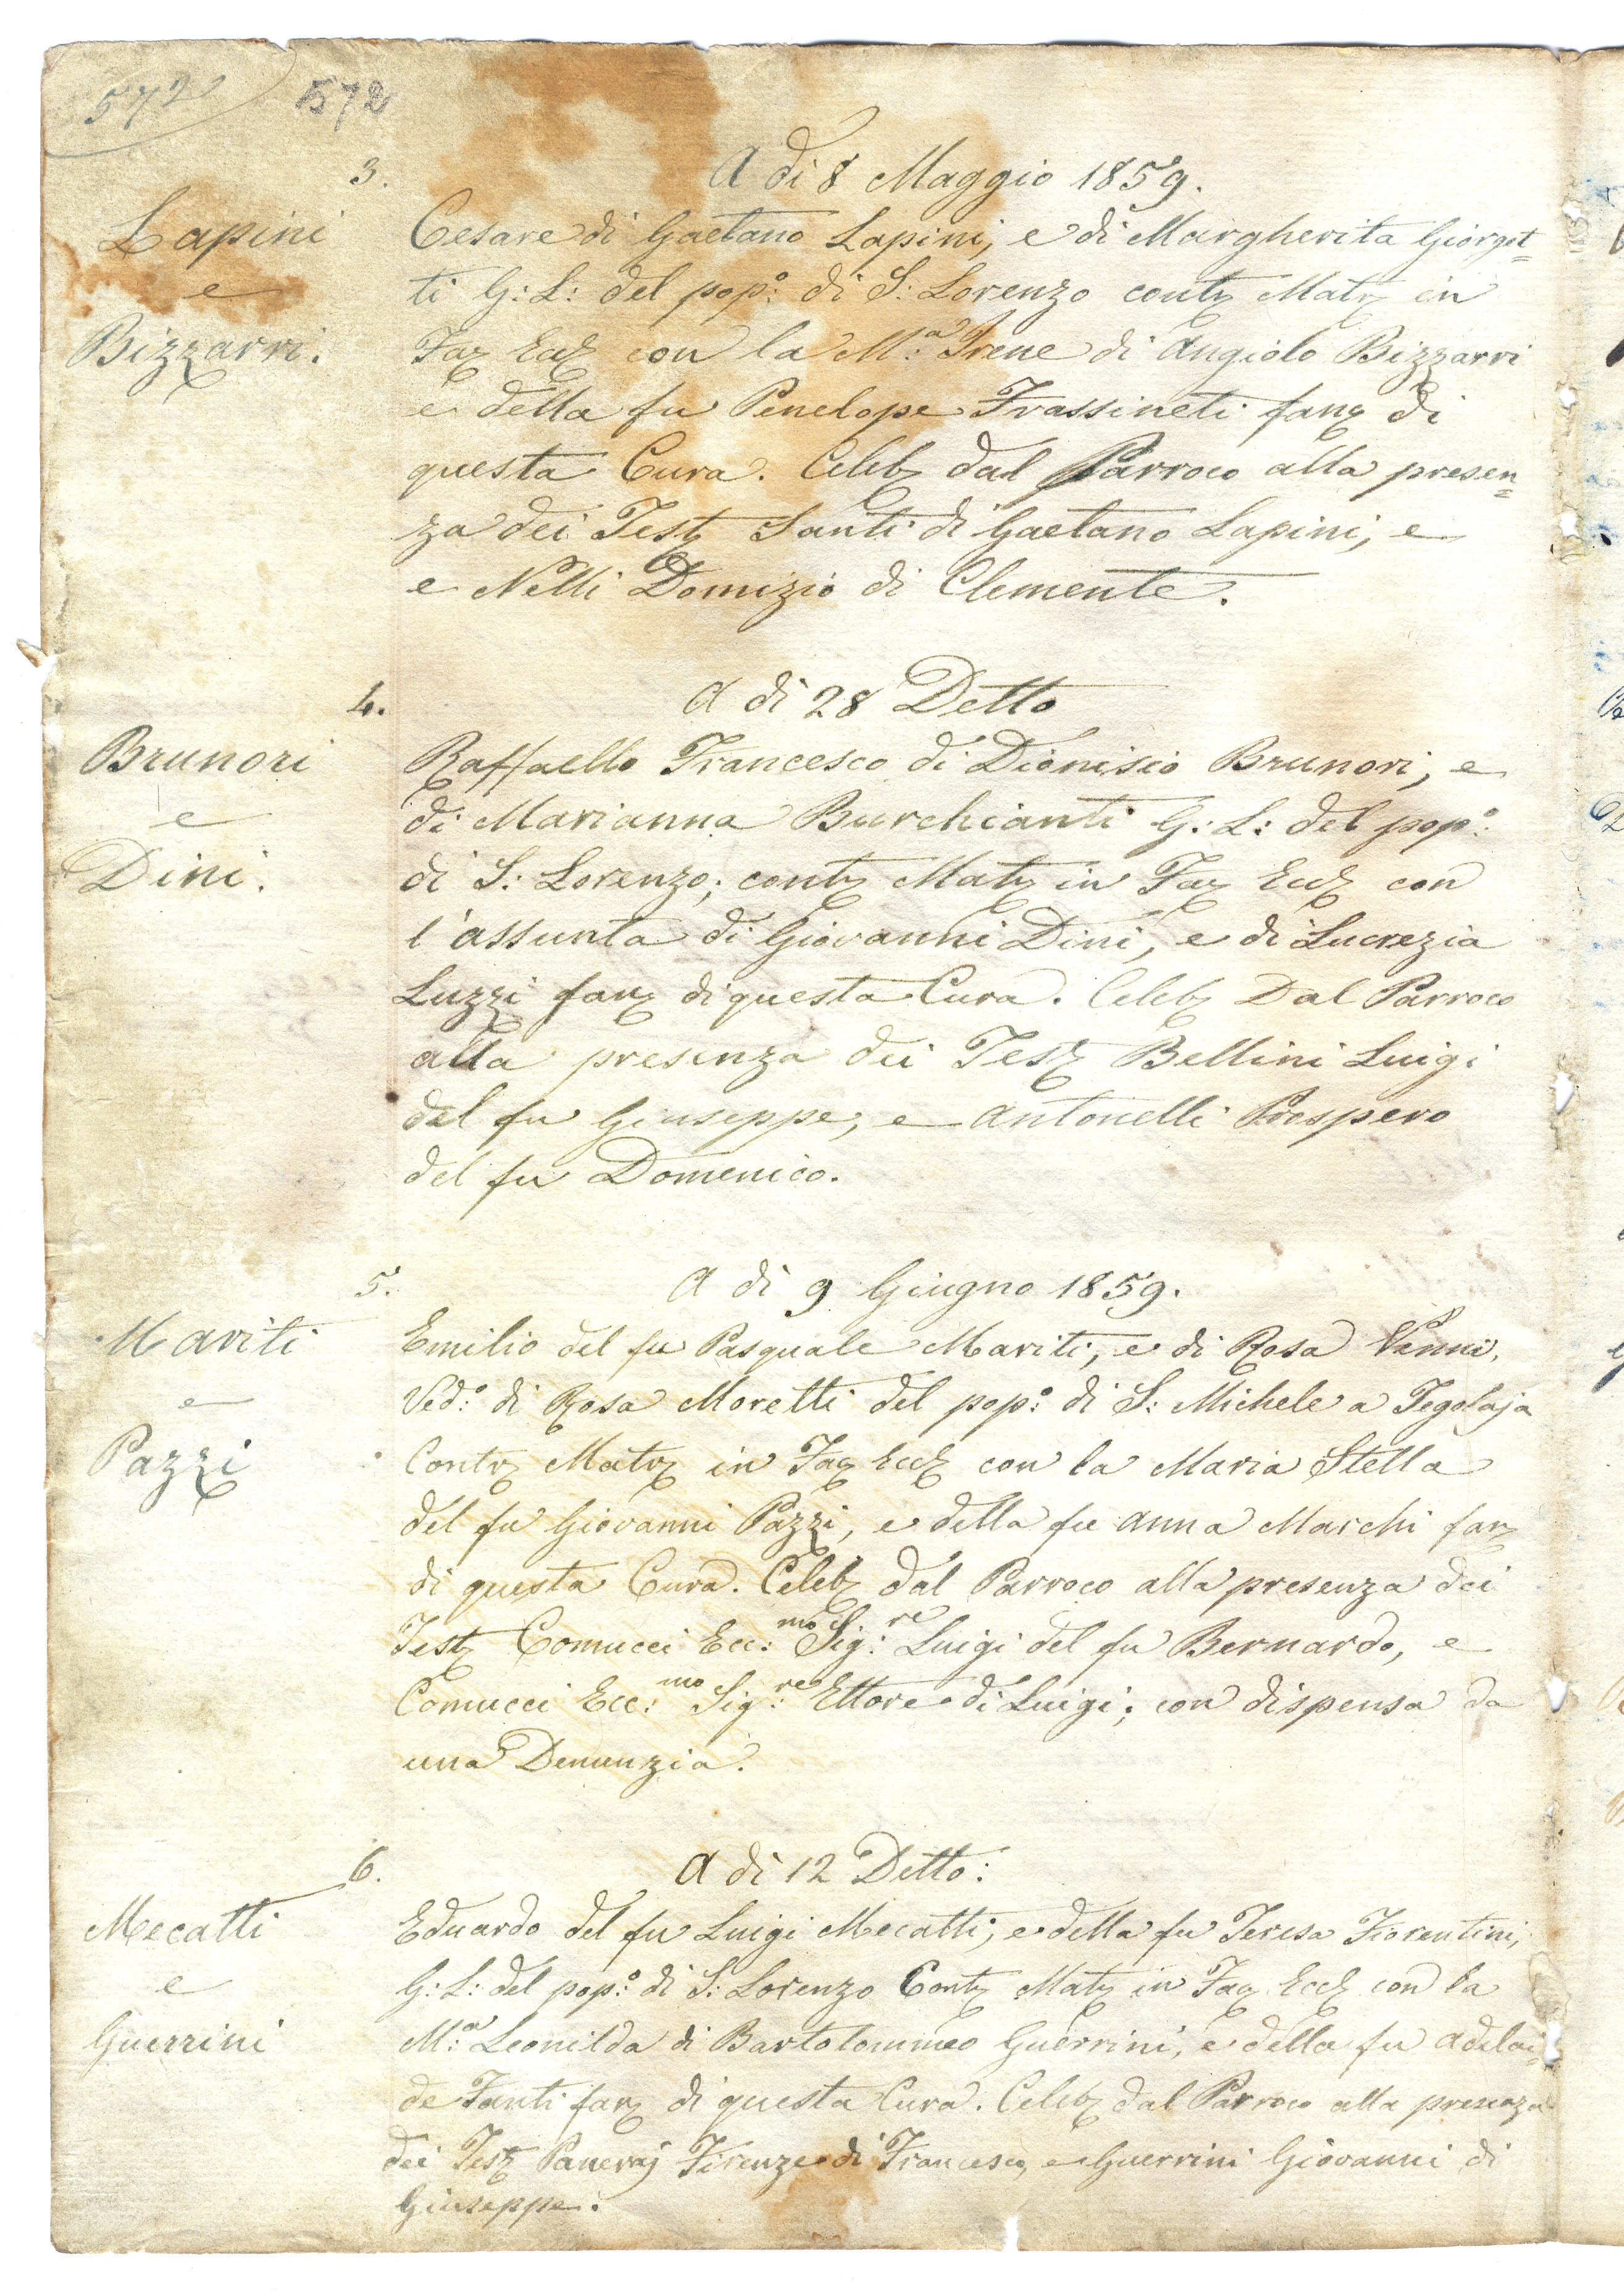 572 572
3. A di 8 Maggio 1859.
Lapini Cesare di Gaetano Lapini, e di Margherita Giorget=
e ti G: L: del pop:º di S: Lorenzo contz Matz in
Bizzarri. Faz Eccz con la M:ª Irene di Angiolo Bizzarri
e della fu Penelope Frassineti fanz di
questa Cura. Celebz dal Parroco alla presen=
za dei Testz Santi di Gaetano Lapini, e
e Nelli Domizio di Clemente.
4. A di 28 Detto
Brunori Raffaello Francesco di Dionisio Brunori, e
e di Marianna Burchianti G: L: del pop:º
Dini. di S: Lorenzo; contz Matz in Faz Eccz con
l'assunta di Giovanni Dini, e di Lucrezia
Luzzi fanz di questa Cura. Celebz Dal Parroco
alla presenza dei Testz Bellini Luigi
del fu Giuseppe, e Antonelli Prospero
del fu Domenico.
5. A di 9 Giugno 1859.
Mariti Emilio del fu Pasquale Mariti, e di Rosa Vanni,
e Ved:º di Rosa Moretti del pop:º di S: Michele a Tegolaja
Pazzi Contz Matz in Faz Eccz con la Maria Stella
del fu Giovanni Pazzi, e della fu Anna Marchi fanz
di questa Cura. Celebz dal Parroco alla presenza dei
Testz Comucci Ecc:mo Sig:re Luigi del fu Bernardo, e
Comucci Ecc:mo Sig:re Ettore di Luigi; con dispensa da
una Denunzia.
6. A di 12 Detto:
Mecatti Eduardo del fu Luigi Mecatti, e della fu Teresa Fiorentini,
e G: L: del pop:º di S: Lorenzo Contz Matz in Faz Eccz con la
Guerrini M:ª Leonilda di Bartolommeo Guerrini, e della fu Adelai=
de Fanti fanz di questa Cura. Celebz dal Parroco alla presenza
dei Testz Paneraj Firenze di Francesco, e Guerrini Giovanni di
Giuseppe.